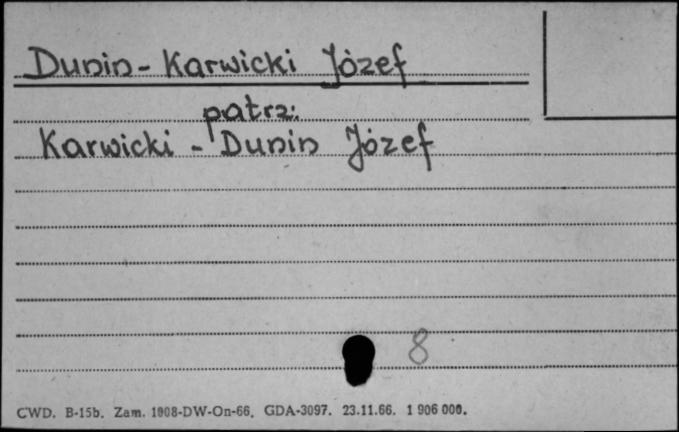 Dunin - Karwicki Józef
patrz:
Karwicki - Dunin Józef
8
CWD. B-15b. Zam. 1908-DW-On-66. GDA-3097. 23.11.66. 1 906 000.